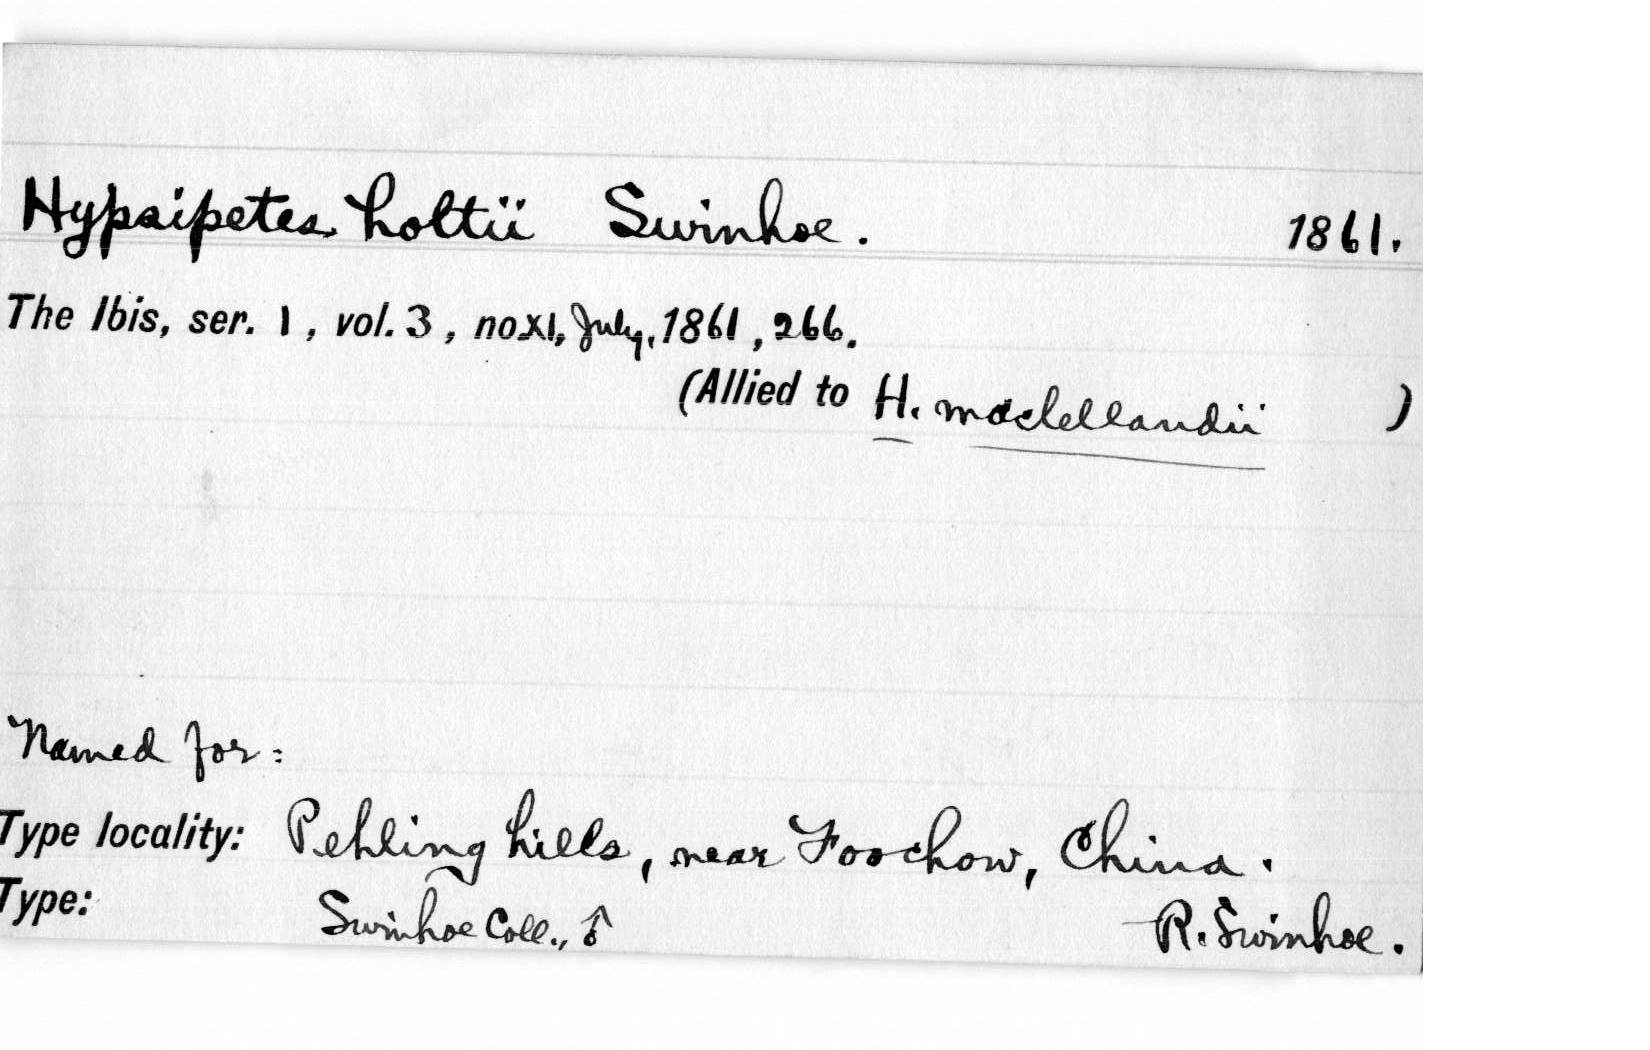 Hypsipetes holtii Swinhoe. 1861.
The Ibis, ser. 1, vol. 3, no XI, July, 1861, 266.
(Allied to H. maclellandii )
Named for:
Type locality: Pehling hills, near Foochow, China.
Type: Swinhoe Coll., ♂ R. Swinhoe.